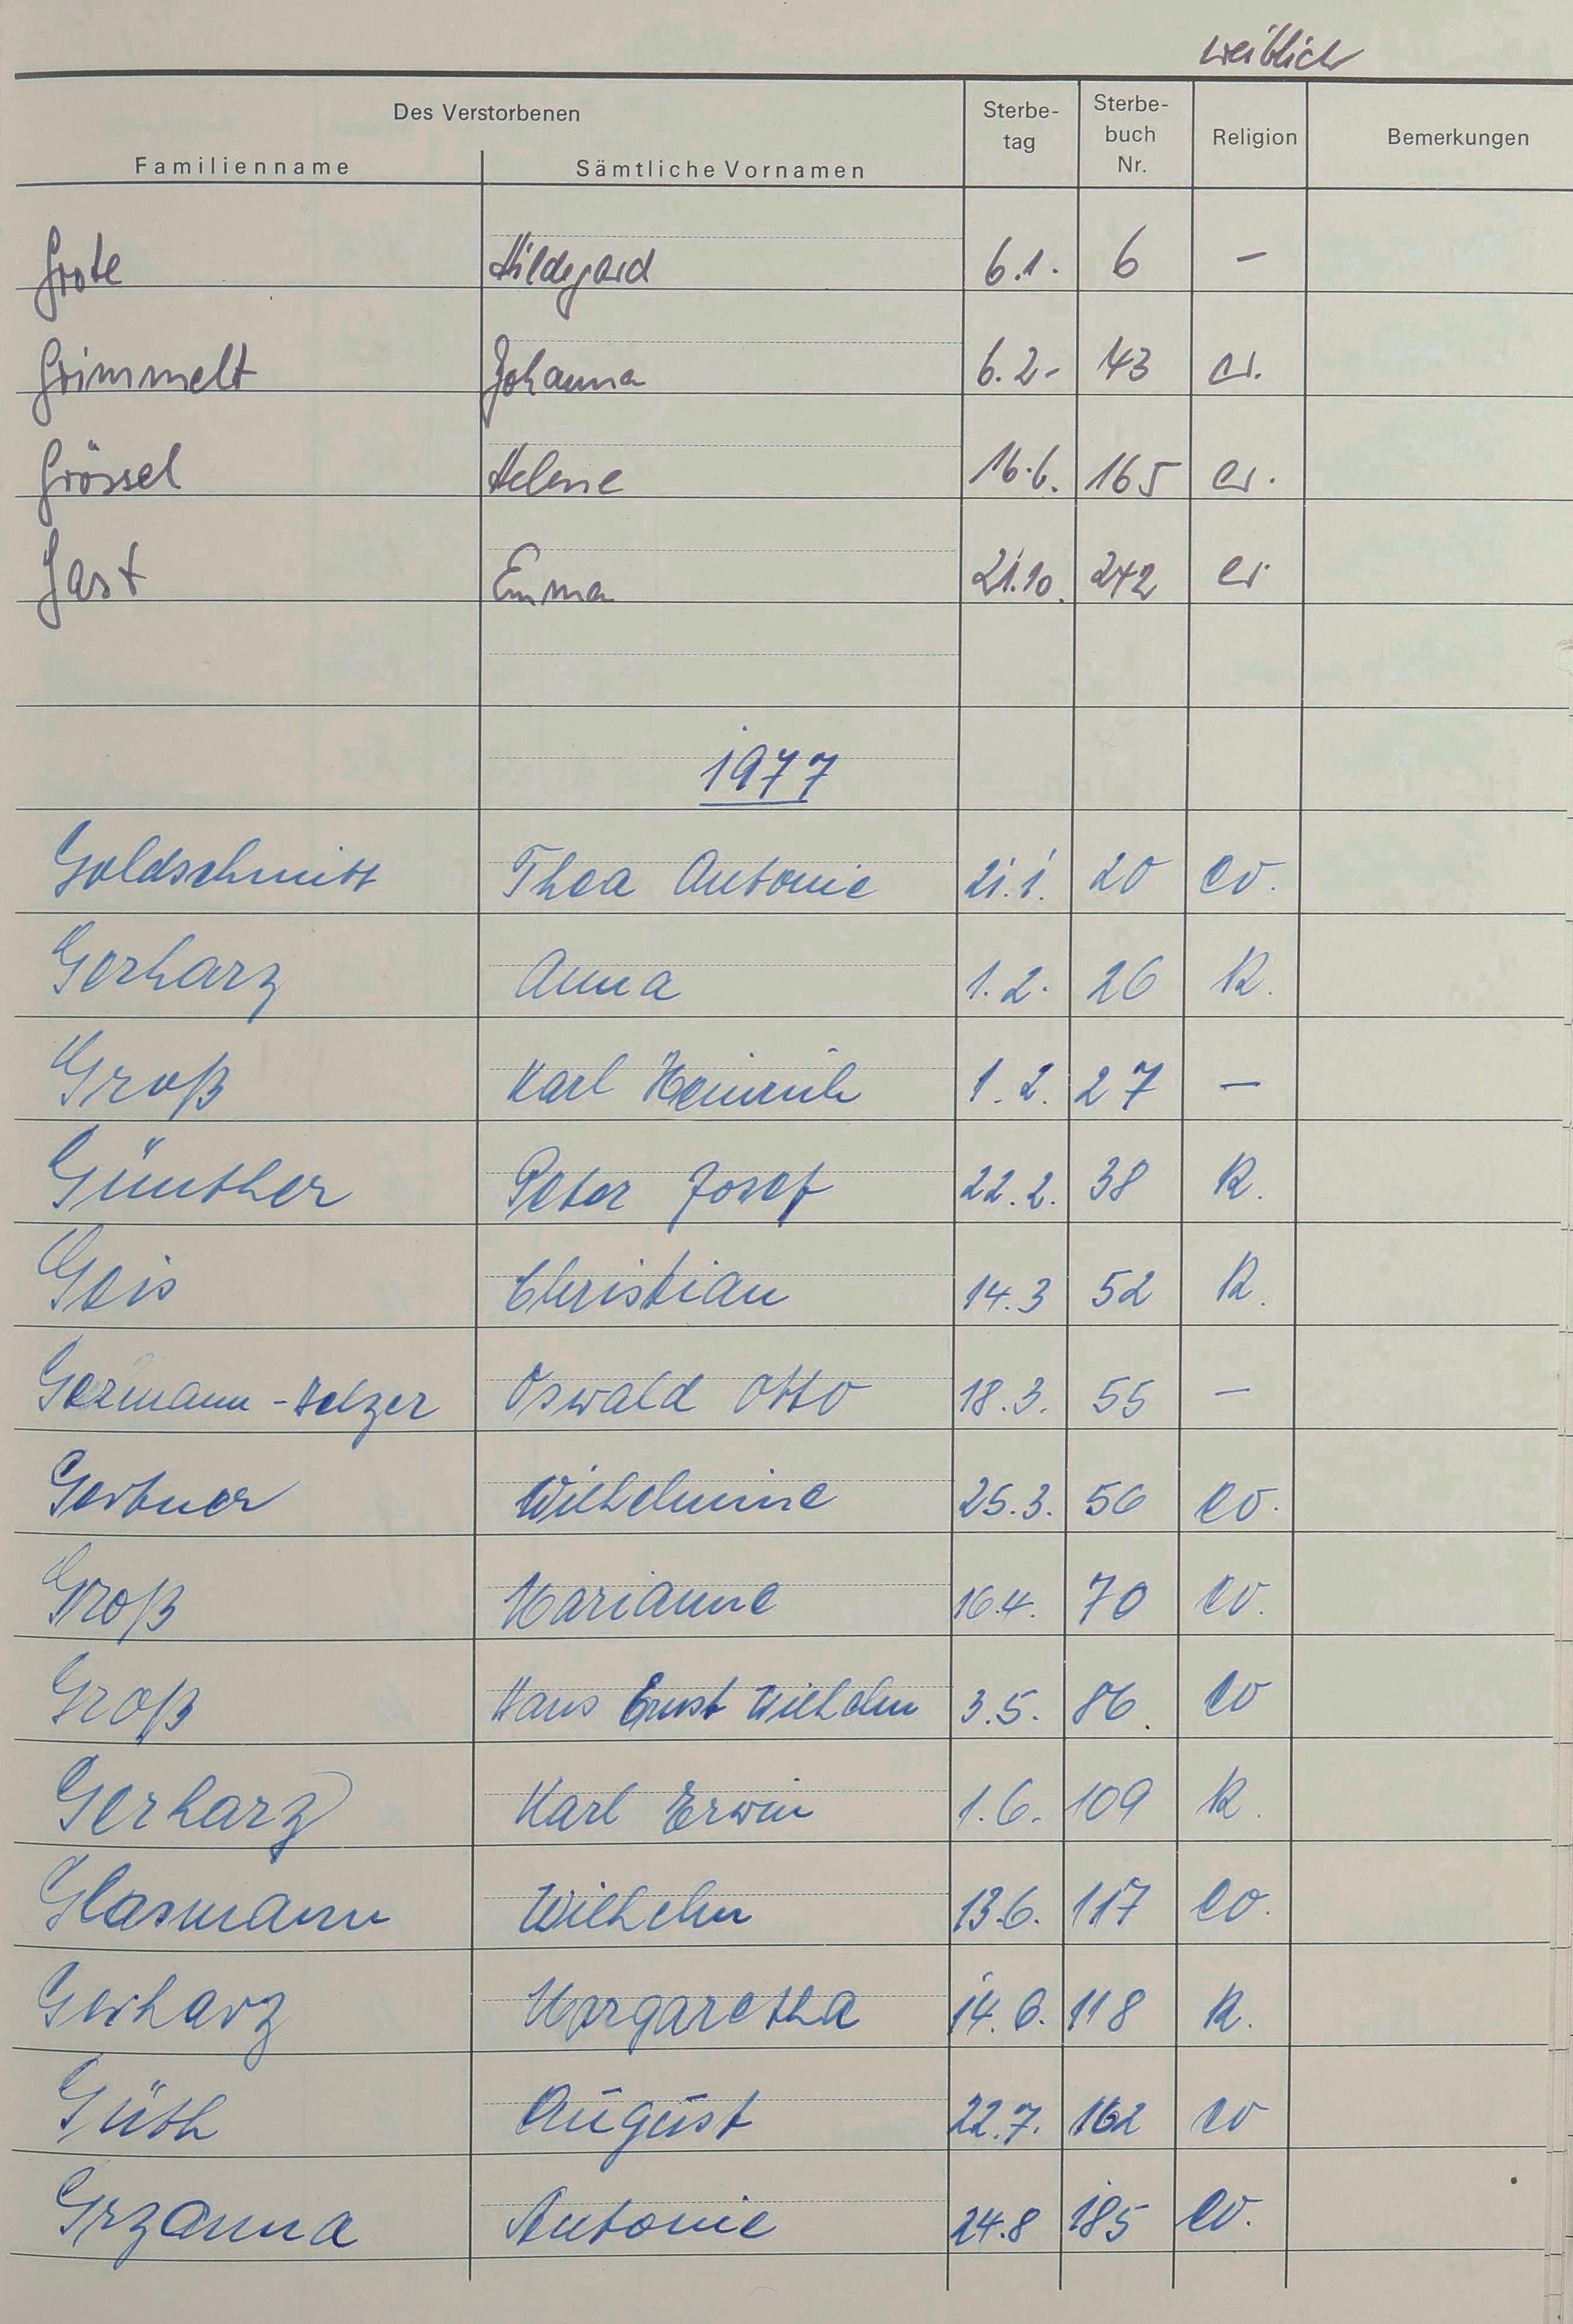 weiblich
Des Verstorbenen
Familienname Sämtliche Vornamen Sterbe-tag Sterbe-buch Nr. Religion Bemerkungen
Grote Hildegard 6.1. 6 –
Grimmelt Johanna 6.2. 43 ev.
Grössel Helene 16.6. 165 ev.
Gast Emma 21.10. 242 ev
1977
Goldschmitt Thea Antonie 21.1. 20 ev.
Gerharz Anna 1.2. 26 k.
Groß Karl Heinrich 1.2. 27 –
Günther Peter Josef 22.2. 38 k.
Geis Christian 14.3 52 k.
Germann-Melzer Oswald Otto 18.3. 55 –
Gertner Wilhelmine 25.3. 56 ev.
Groß Marianne 16.4. 70 ev.
Groß Hans Ernst Wilhelm 3.5. 86. ev
Gerharz Karl Erwin 1.6. 109 k.
Glasmann Wilhelm 13.6. 117 ev.
Gerharz Margaretha 14.6. 118 k.
Güth August 22.7. 162 ev
Grzanna Antonie 24.8 185 ev.